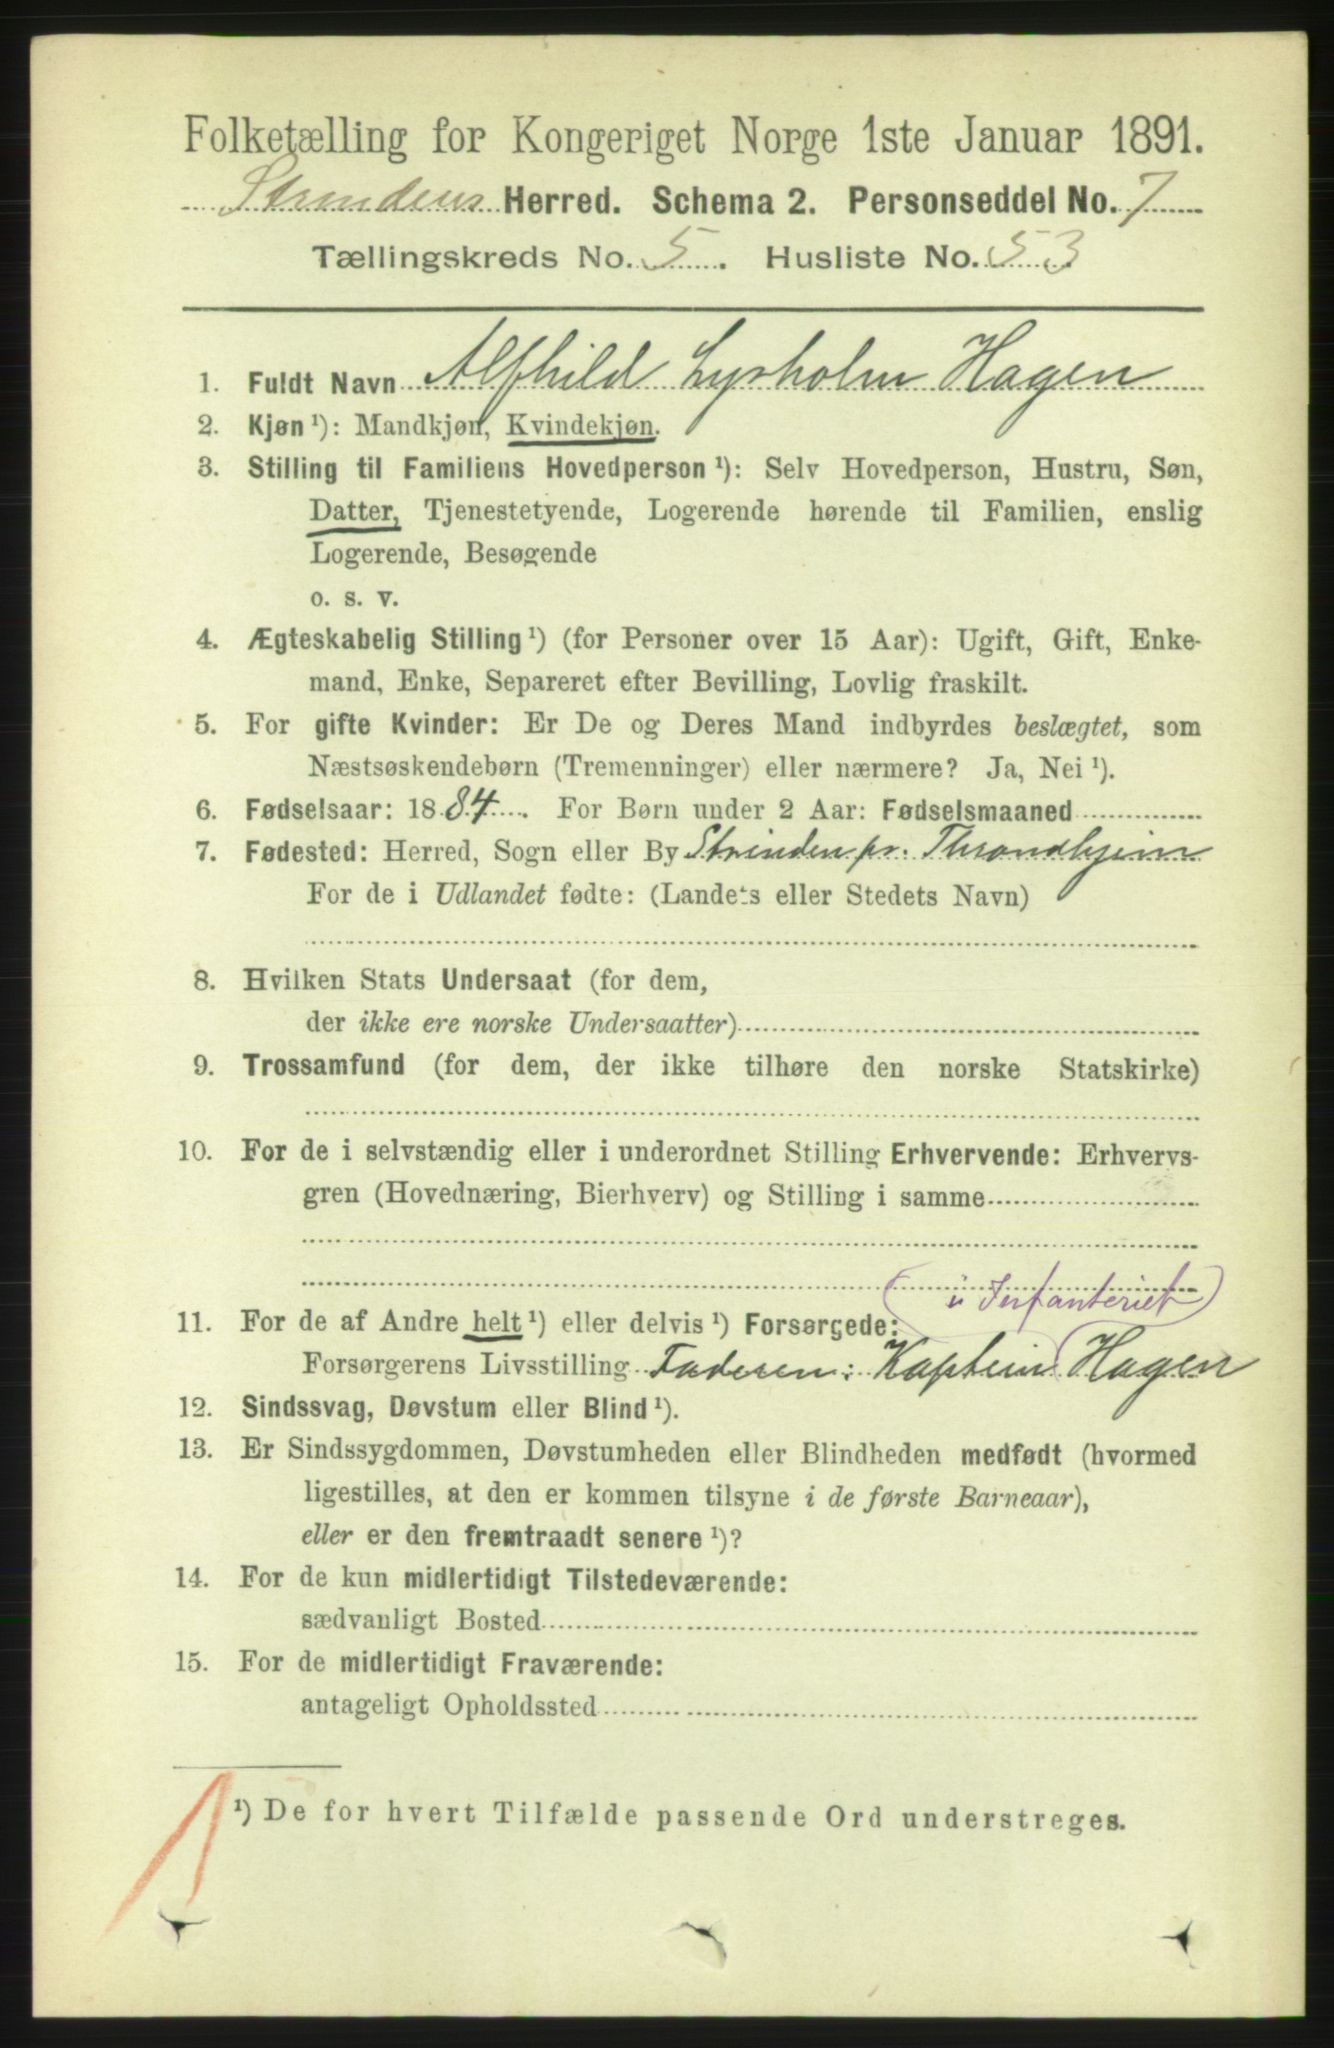 Folketælling for Kongeriget Norge 1ste Januar 1891.
Strindens Herred. Schema 2. Personseddel No. 7
Tællingskreds No. 5. Husliste No. 53
1. Fuldt Navn Alfhild Lysholm Hagen
2. Kjøn ¹): Mandkjøn, Kvindekjøn.
3. Stilling til Familiens Hovedperson ¹): Selv Hovedperson, Hustru, Søn,
Datter, Tjenestetyende, Logerende hørende til Familien, enslig
Logerende, Besøgende
o. s. v.
4. Ægteskabelig Stilling ¹) (for Personer over 15 Aar): Ugift, Gift, Enke-
mand, Enke, Separeret efter Bevilling, Lovlig fraskilt.
5. For gifte Kvinder: Er De og Deres Mand indbyrdes beslægtet, som
Næstsøskendebørn (Tremenninger) eller nærmere? Ja, Nei ¹).
6. Fødselsaar: 1884. For Børn under 2 Aar: Fødselsmaaned
7. Fødested: Herred, Sogn eller By Strinden pr. Throndhjem
For de i Udlandet fødte: (Landets eller Stedets Navn)
8. Hvilken Stats Undersaat (for dem,
der ikke ere norske Undersaatter)
9. Trossamfund (for dem, der ikke tilhøre den norske Statskirke)
10. For de i selvstændig eller i underordnet Stilling Erhvervende: Erhvervs-
gren (Hovednæring, Bierhverv) og Stilling i samme
(i Infanteriet)
11. For de af Andre helt ¹) eller delvis ¹) Forsørgede:
Forsørgerens Livsstilling Faderen: Kaptein Hagen
12. Sindssvag, Døvstum eller Blind ¹).
13. Er Sindssygdommen, Døvstumheden eller Blindheden medfødt (hvormed
ligestilles, at den er kommen tilsyne i de første Barneaar),
eller er den fremtraadt senere ¹)?
14. For de kun midlertidigt Tilstedeværende:
sædvanligt Bosted
15. For de midlertidigt Fraværende:
antageligt Opholdssted
¹) De for hvert Tilfælde passende Ord understreges.